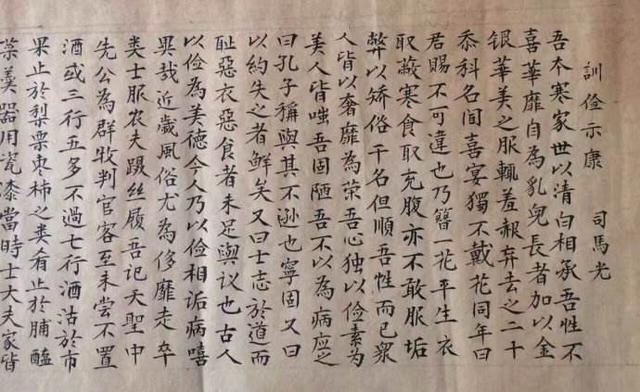 訓儉示康 司馬光
吾本寒家世以清白相承吾性不
喜華靡自為乳兒長者加以金
银華美之服輒羞赧弃去之二十
忝科名闻喜宴獨不戴花同年曰
君賜不可違也乃簪一花平生衣
取蔽寒食取充腹亦不敢服垢
弊以矯俗干名但順吾性而已衆
人皆以奢靡為荣吾心独以俭素為
美人皆嗤吾固陋吾不以為病应之
曰孔子稱與其不逊也寧固又曰
以約失之者鮮矣又曰士志於道而
耻惡衣惡食者未足與议也古人
以俭為美德今人乃以俭相诟病嘻
異哉近歲風俗尤為侈靡走卒
类士服农夫蹑丝履吾记天聖中
先公為群牧判官客至未嘗不置
酒或三行五多不過七行酒沽於市
果止於梨栗枣柿之类肴止於脯醢
菜羹器用瓷漆當時士大夫家皆